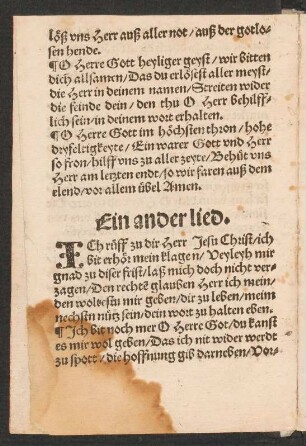 löß vns Herr auß aller not/auß der gotlo-
sen hende.
¶O Herre Gott heyliger geyst/wir bitten
dich allsamen/Das du erlösest aller meyst/
die Herr in deinem namen/Streiten wider
die feinde dein/den thu O Herr behilff/
lich sein/in deinem wort erhalten.
¶O Herre Gott im höchsten thron/hohe
dryfeltigkeyte/Ein warer Gott vnd Herr
so fron/hilff vns zu aller zeyte/Behüt vns
Herr am letzten endt/so wir faren auß dem
elend/vor allem übel Amen.
Ein ander lied.
ICh rüff zu dir Herr Jesu Christ/ich
bit erhör mein klagen/Verleyh mir
gnad zu diser frist/laß mich doch nicht ver-
zagen/Den rechtē glauben Herr ich mein/
den wolbestu mir geben/dir zu leben/meim
nechstn nütz sein/dein wort zu halten eben.
¶Ich bit noch mer O Herre Got/du kanst
es mir wol geben/Das ich nit wider werdt
zu spott/die hoffnung gib darneben/Vor-